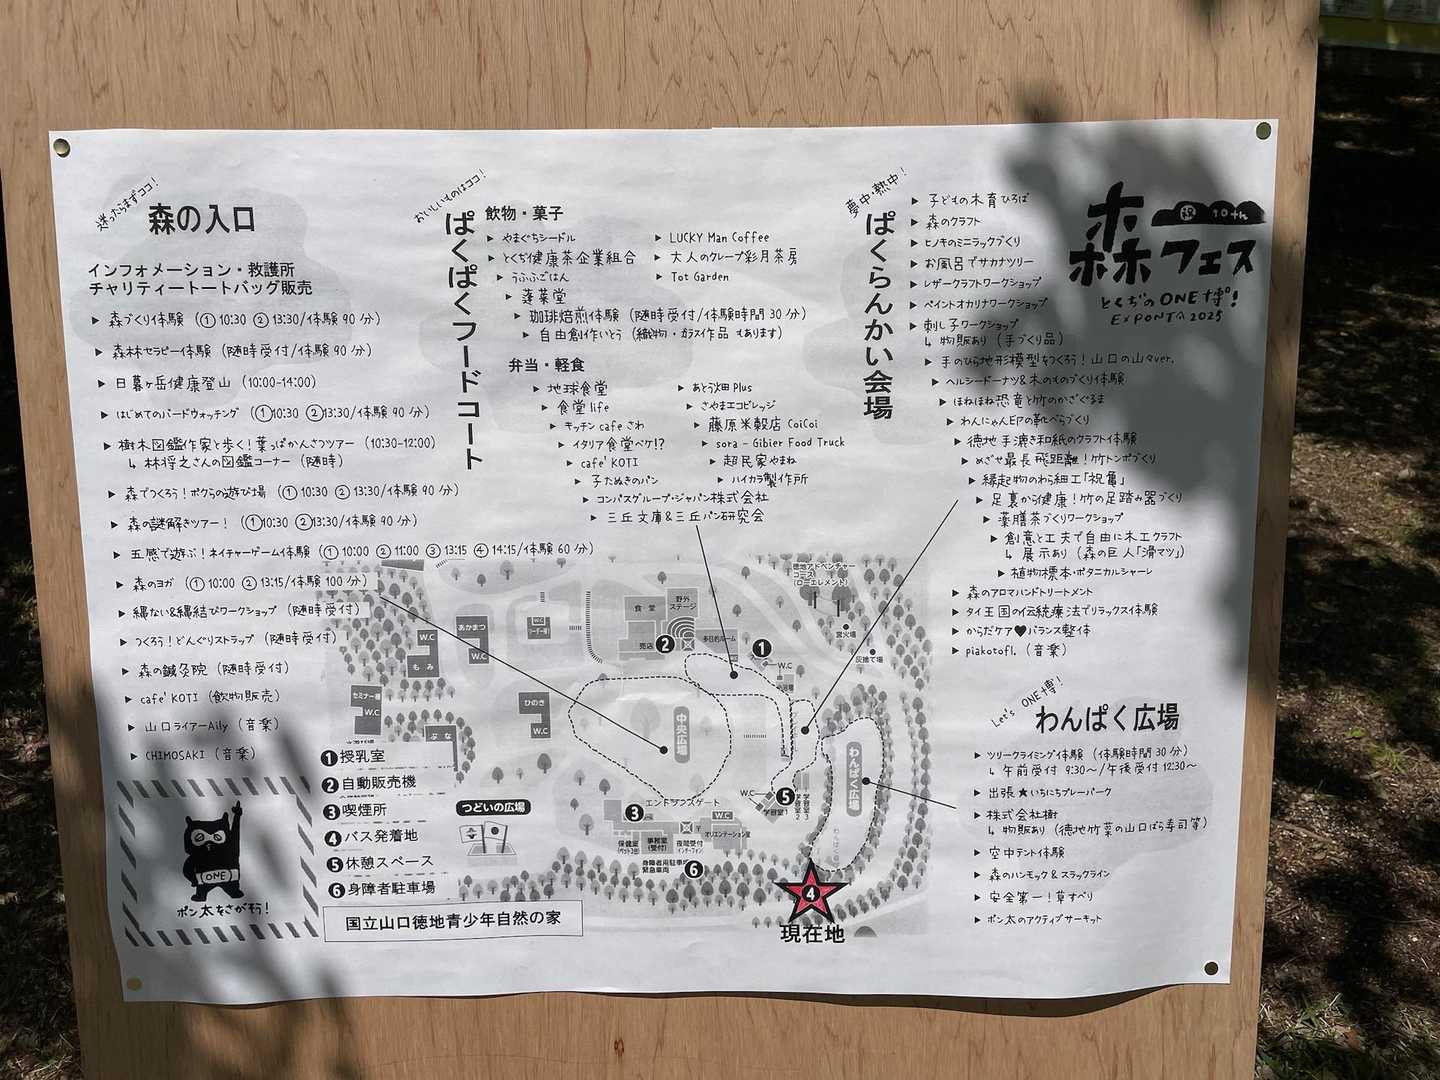 迷ったらまずココ!
森の入口
インフォメーション・救護所
チャリティートートバッグ販売
▶ 森づくり体験 (① 10:30 ② 13:30/体験 90 分)
▶ 森林セラピー体験 (随時受付/体験 90 分)
▶ 日暮ヶ岳健康登山 (10:00-14:00)
▶ はじめてのバードウォッチング (①10:30 ②13:30/体験 90 分)
▶ 樹木図鑑作家と歩く!葉っぱかんさつツアー (10:30-12:00)
↳ 林将之さんの図鑑コーナー (随時)
▶ 森でつくろう!ボクらの遊び場 (① 10:30 ② 13:30/体験 90 分)
▶ 森の謎解きツアー! (①10:30 ②13:30/体験 90 分)
▶ 五感で遊ぶ!ネイチャーゲーム体験 (① 10:00 ② 11:00 ③ 13:15 ④ 14:15/体験 60 分)
▶ 森のヨガ (① 10:00 ② 13:15/体験 100 分)
▶ 縄ない&縄結びワークショップ (随時受付)
▶ つくろう!どんぐりストラップ (随時受付)
▶ 森の鍼灸院 (随時受付)
▶ cafe' KOTI (飲物販売)
▶ 山口ライアーAily (音楽)
▶ CHIMOSAKI (音楽)
ONE
ポン太をさがそう!
おいしいものはココ!
ぱくぱくフードコート
飲物・菓子
▶ やまぐちシードル
▶ とくぢ健康茶企業組合
▶ うふふごはん
▶ 蓬莱堂
▶ 珈琲焙煎体験 (随時受付/体験時間 30 分)
▶ 自由創作いとう (織物・ガラス作品 もあります)
▶ LUCKY Man Coffee
▶ 大人のクレープ彩月茶房
▶ Tot Garden
弁当・軽食
▶ 地球食堂
▶ 食堂 life
▶ キッチン cafe さわ
▶ イタリア食堂ベケ!?
▶ cafe' KOTI
▶ 子たぬきのパン
▶ コンパスグループ・ジャパン株式会社
▶ 三丘文庫&三丘パン研究会
▶ あとう畑 Plus
▶ さやまエコビレッジ
▶ 藤原米穀店 CoiCoi
▶ sora - Gibier Food Truck
▶ 超民家やまね
▶ ハイカラ製作所
夢中・熱中!
ぱくらんかい会場
▶ 子どもの木育ひろば
▶ 森のクラフト
▶ ヒノキのミニラックづくり
▶ お風呂でサカナツリー
▶ レザークラフトワークショップ
▶ ペイントオカリナワークショップ
▶ 刺し子ワークショップ
↳ 物販あり (手づくり品)
▶ 手のひら地形模型をつくろう!山口の山々ver.
▶ ヘルシードーナツ&木のものづくり体験
▶ ほねほね恐竜と竹のかざぐるま
▶ わんにゃんEPの靴べらづくり
▶ 徳地手漉き和紙のクラフト体験
▶ めざせ最長飛距離!竹トンボづくり
▶ 縁起物のわら細工「祝亀」
▶ 足裏から健康!竹の足踏み器づくり
▶ 薬膳茶づくりワークショップ
▶ 創意と工夫で自由に木工クラフト
↳ 展示あり (森の巨人「滑マツ」)
▶ 植物標本・ボタニカルシャーレ
▶ 森のアロマハンドトリートメント
▶ タイ王国の伝統療法でリラックス体験
▶ からだケア♥バランス整体
▶ piakotofl. (音楽)
祝 10th
森フェス
とくぢのONE博!
EXPONTA 2025
Let's ONE博!
わんぱく広場
▶ ツリークライミング体験 (体験時間 30 分)
↳ 午前受付 9:30~/午後受付 12:30~
▶ 出張★いちにちプレーパーク
▶ 株式会社樹
↳ 物販あり (徳地竹菜の山口ばら寿司等)
▶ 空中テント体験
▶ 森のハンモック & スラックライン
▶ 安全第一!草すべり
▶ ポン太のアクティブサーキット
徳地アドベンチャー
コース
(ローエレメント)
食堂
野外
ステージ
売店
多目的ルーム
営火場
灰捨て場
あかまつ
W.C
リーダー棟
W.C
もみ
W.C
セミナー棟
W.C
ひのき
W.C
ぶな
W.C
中央広場
わんぱく広場
W.C
学習室1
学習室2
学習室3
エントランスゲート
W.C
オリエンテーション室
保健室
(ベット3台)
事務室
(受付)
夜間受付
インターフォン
身障者用駐車場
緊急車両
つどいの広場
❶授乳室
❷自動販売機
❸喫煙所
❹バス発着地
❺休憩スペース
❻身障者駐車場
国立山口徳地青少年自然の家
4
現在地